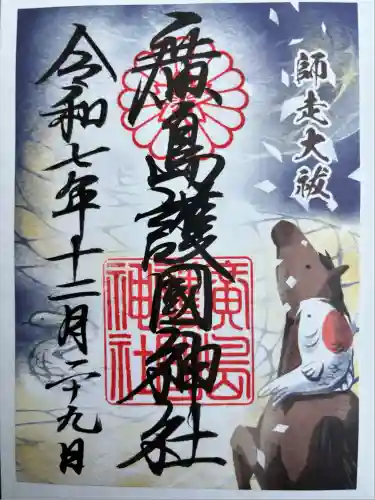 師走大祓
廣島護國神社
廣島護國神社
令和七年十二月二十九日